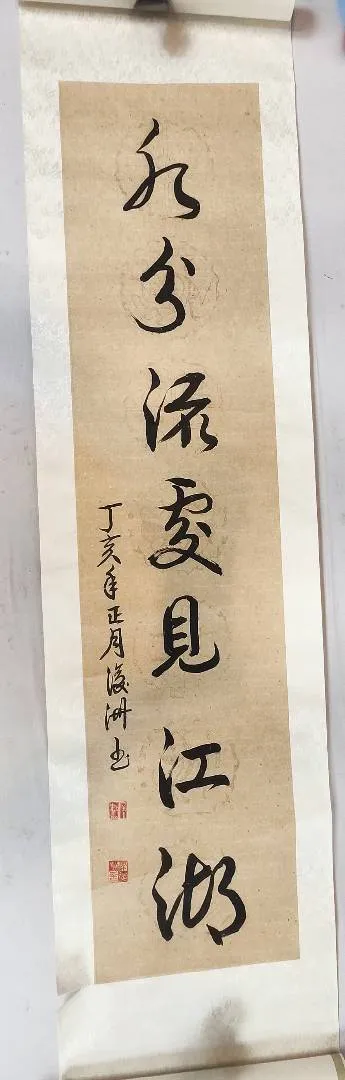 水分流處見江湖
丁亥年正月後洲书